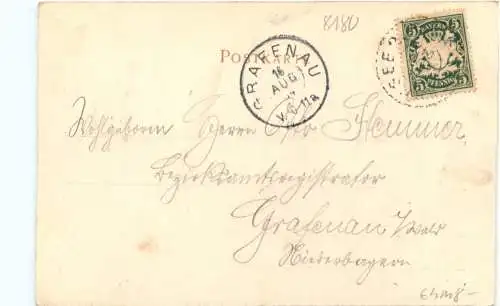 8180
POSTKARTE
GRAFENAU
16
AUG
V.6-11a
BAYERN
5 5
PFENNIG
5 5
Wohlgeboren Herrn Otto Hemmer
Bezirksamtsregistrator
Grafenau /Wald
Niederbayern